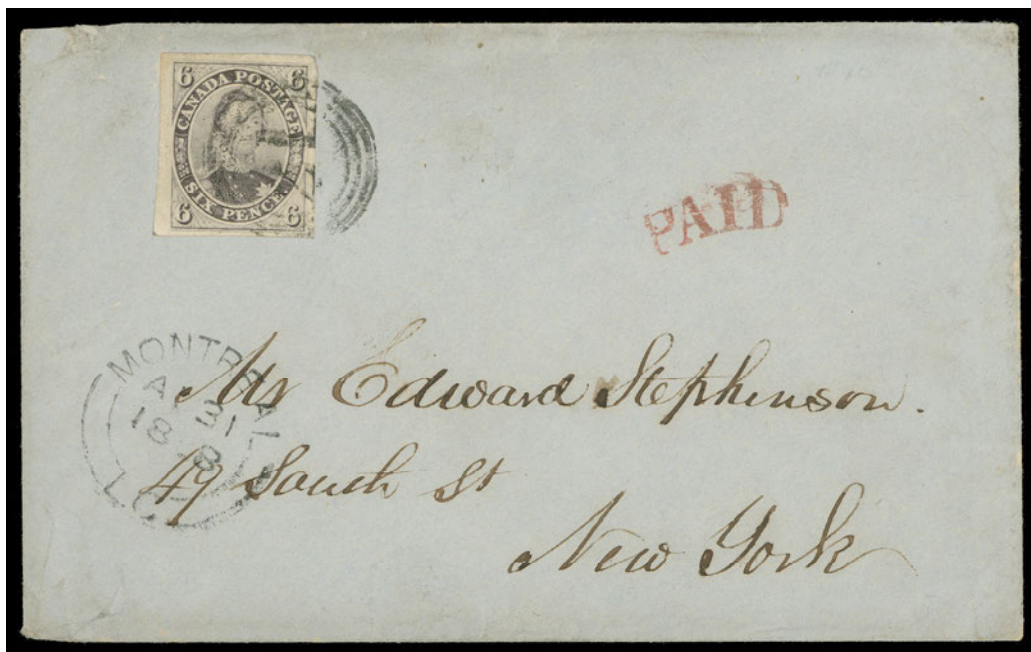 6 6
CANADA POSTAGE
SIX PENCE
6 6
PAID
MONTREAL
31
18
L.C.
Mr Edward Stephenson.
49 South St
New York